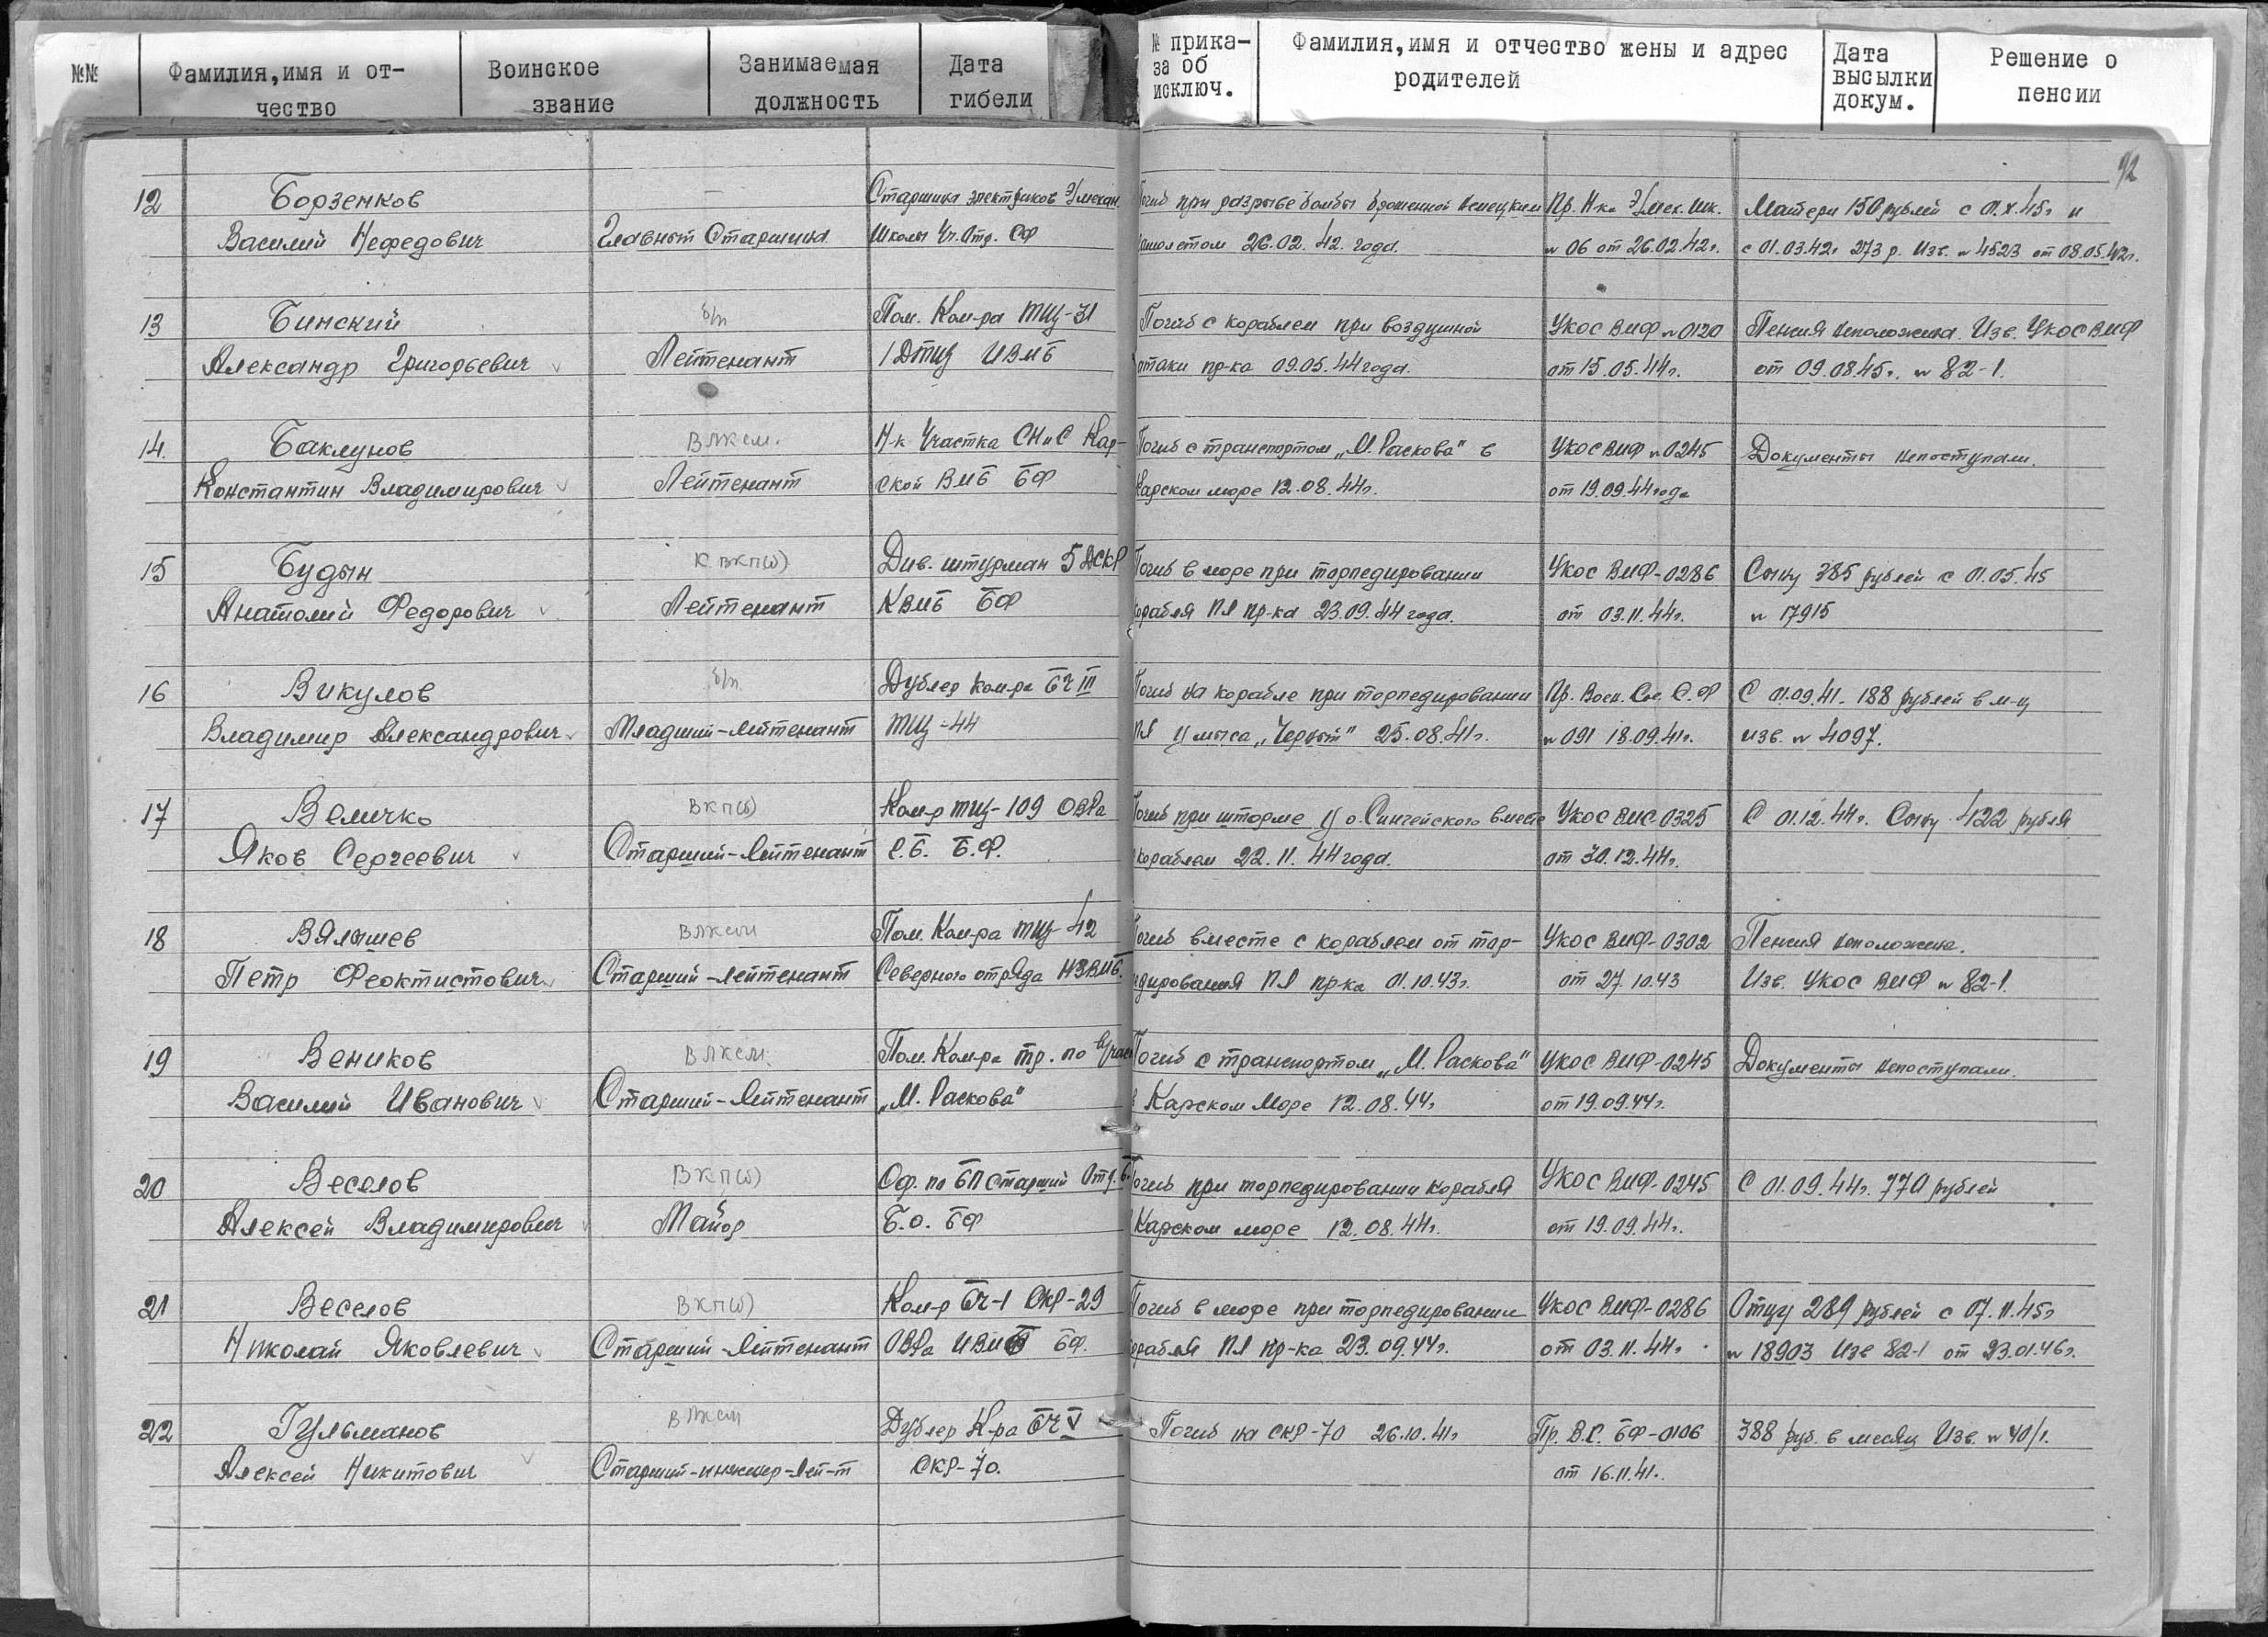 №№ Фамилия, имя и от-
чество
Воинское
звание
Занимаемая
должность
Дата
гибели
№ прика-
за об
исключ.
Фамилия, имя и отчество жены и адрес
родителей
Дата
высылки
докум.
Решение о
пенсии
92
12 Борзенков — Старшина электриков Э/механ. Погиб при разрыве бомбы брошенной немецким Пр. Н-ка Э/мех. шк. Матери 150 рублей с 01.X.45г и
Василий Нефедович Главный Старшина Школы Уч. Отр. СФ самолетом 26.02.42. года. № 06 от 26.02.42г. с 01.03.42г 273 р. Изв. № 4523 от 08.05.42г.
13 Бинский б/п Пом. Ком-ра ТЩ-31 Погиб с кораблем при воздушной УКОС ВМФ № 0120 Пенсия неположена. Изв. УКОС ВМФ
Александр Григорьевич Лейтенант 1 ДТЩ ИВМБ атаки пр-ка 09.05.44 года. от 15.05.44г. от 09.08.45г. № 82-1.
14. Баклунов ВЛКСМ. Н-к Участка СНиС Кар- Погиб с транспортом „М. Раскова" в УКОС ВМФ № 0245 Документы непоступали.
Константин Владимирович Лейтенант ской ВМБ БФ Карском море 12.08.44г. от 19.09.44 года
15 Будын К ВКП(б) Див. штурман 5 ДСКР Погиб в море при торпедировании УКОС ВМФ-0286 Сыну 385 рублей с 01.05.45
Анатолий Федорович Лейтенант КВМБ БФ корабля ПЛ пр-ка 23.09.44 года. от 03.11.44г. № 17915
16 Викулов б/п Дублер ком-ра БЧ III Погиб на корабле при торпедировании Пр. Воен. Сов. С.Ф С 01.09.41. 188 рублей в м-ц
Владимир Александрович Младший-лейтенант ТЩ-44 ПЛ у мыса „Черный" 25.08.41г. № 091 18.09.41г. изв. № 4097.
17 Величко ВКП(б) Ком-р ТЩ-109 ОВРа Погиб при шторме у о. вместе УКОС ВМС 0325 С 01.12.44г. Сыну 422 рубля
Яков Сергеевич Старший-Лейтенант С.Б. Б.Ф. с кораблем 22.11.44 года. от 30.12.44г.
18 Вялашев ВЛКСМ Пом. Ком-ра ТЩ-42 Погиб вместе с кораблем от тор- УКОС ВМФ-0302 Пенсия неположена.
Петр Феоктистович Старший-лейтенант Северного отряда НЗВМБ. педирования ПЛ пр-ка 01.10.43г. от 27.10.43 Изв. УКОС ВМФ № 82-1.
19 Веников ВЛКСМ. Пом. Ком-ра тр. по Погиб с транспортом „М. Раскова" УКОС ВМФ-0245 Документы непоступали.
Василий Иванович Старший-Лейтенант „М. Раскова" в Карском Море 12.08.44г от 19.09.44г.
20 Веселов ВКП(б) Оф. по БП Старший Отд. Погиб при торпедировании корабля УКОС ВМФ-0245 С 01.09.44г. 770 рублей
Алексей Владимирович Майор Б.О. БФ Карском море 12.08.44г. от 19.09.44г.
21 Веселов ВКП(б) Ком-р БЧ-1 СКР-29 Погиб в море при торпедировании УКОС ВМФ-0286 Отцу 289 рублей с 07.11.45г
Николай Яковлевич Старший-Лейтенант ОВРа ИВМБ БФ. корабля ПЛ пр-ка 23.09.44г. от 03.11.44г. № 18903 Изв 82-1 от 23.01.46г.
22 Гульманов ВЛКСМ Дублер К-ра БЧ V Погиб на СКР-70 26.10.41г Пр. В.С. БФ-0106 388 руб. в месяц Изв. № 40/1.
Алексей Никитович Старший-инженер-Лей-т СКР-70. от 16.11.41г.